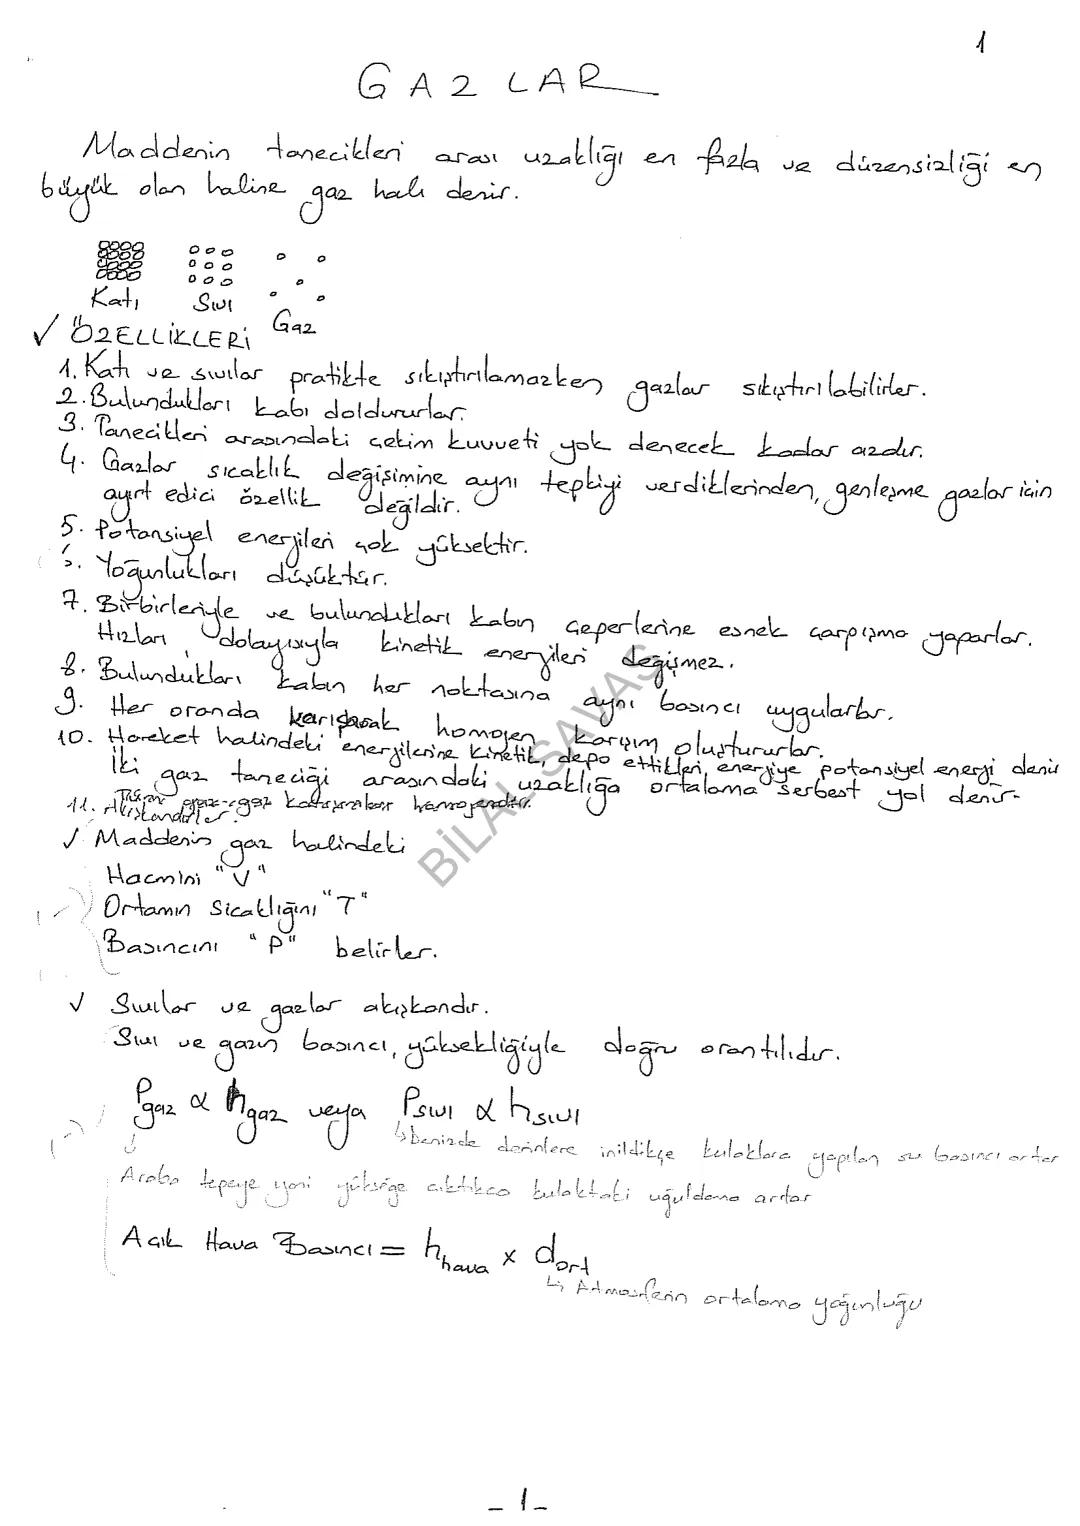 1
GAZLAR
Maddenin tanecikleri arası uzaklığı en fazla ve düzensizliği en
büyük olan haline gaz hali denir.
Katı Sıvı Gaz
✓ ÖZELLİKLERİ
1. Katı ve sıvılar pratikte sıkıştırılamazken gazlar sıkıştırılabilirler.
2. Bulundukları kabı doldururlar.
3. Tanecikleri arasındaki çekim kuvveti yok denecek kadar azdır.
4. Gazlar sıcaklık değişimine aynı tepkiyi verdiklerinden, genleşme gazlar için
ayırt edici özellik değildir.
5. Potansiyel enerjileri çok yüksektir.
6. Yoğunlukları düşüktür.
7. Birbirleriyle ve bulundukları kabın çeperlerine esnek çarpışma yaparlar.
Hızları, dolayısıyla kinetik enerjileri değişmez.
8. Bulundukları kabın her noktasına aynı basıncı uygularlar.
9. Her oranda karışarak homojen karışım oluştururlar.
10. Hareket halindeki enerjilerine kinetik, depo ettikleri enerjiye potansiyel enerji denir
İki gaz taneciği arasındaki uzaklığa ortalama serbest yol denir.
11. Akışkandırlar. Tüm gaz-gaz karışımları homojendir.
✓ Maddenin gaz halindeki
Hacmini "V"
Ortamın Sıcaklığını "T"
Basıncını "P" belirler.
✓ Sıvılar ve gazlar akışkandır.
Sıvı ve gazın basıncı, yüksekliğiyle doğru orantılıdır.
Pgaz α hgaz veya Psıvı α hsıvı
↳ Denizde derinlere inildikçe kulaklara yapılan su basıncı artar
Araba tepeye yani yükseğe çıktıkça kulaktaki uğuldama artar
Açık Hava Basıncı = hhava x dort
↳ Atmosferin ortalama yoğunluğu
BİLAL SAVAŞ
- 1 -